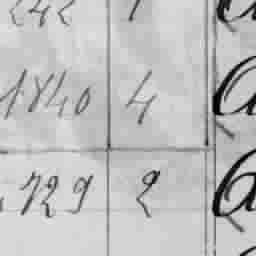 242 1
1840 4
729 2